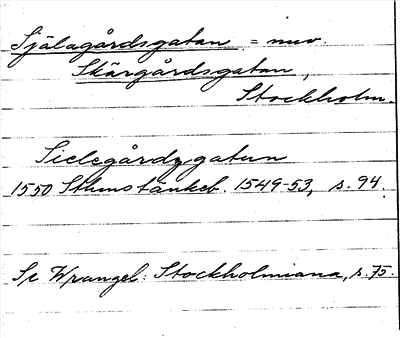 Själagårdsgatan = nuv.
Skärgårdsgatan,
Stockholm.
Sielegårdzgatun
1550 Sthms tänkeb. 1549-53, s. 94.
Se Wrangel: Stockholmiana, s. 75.